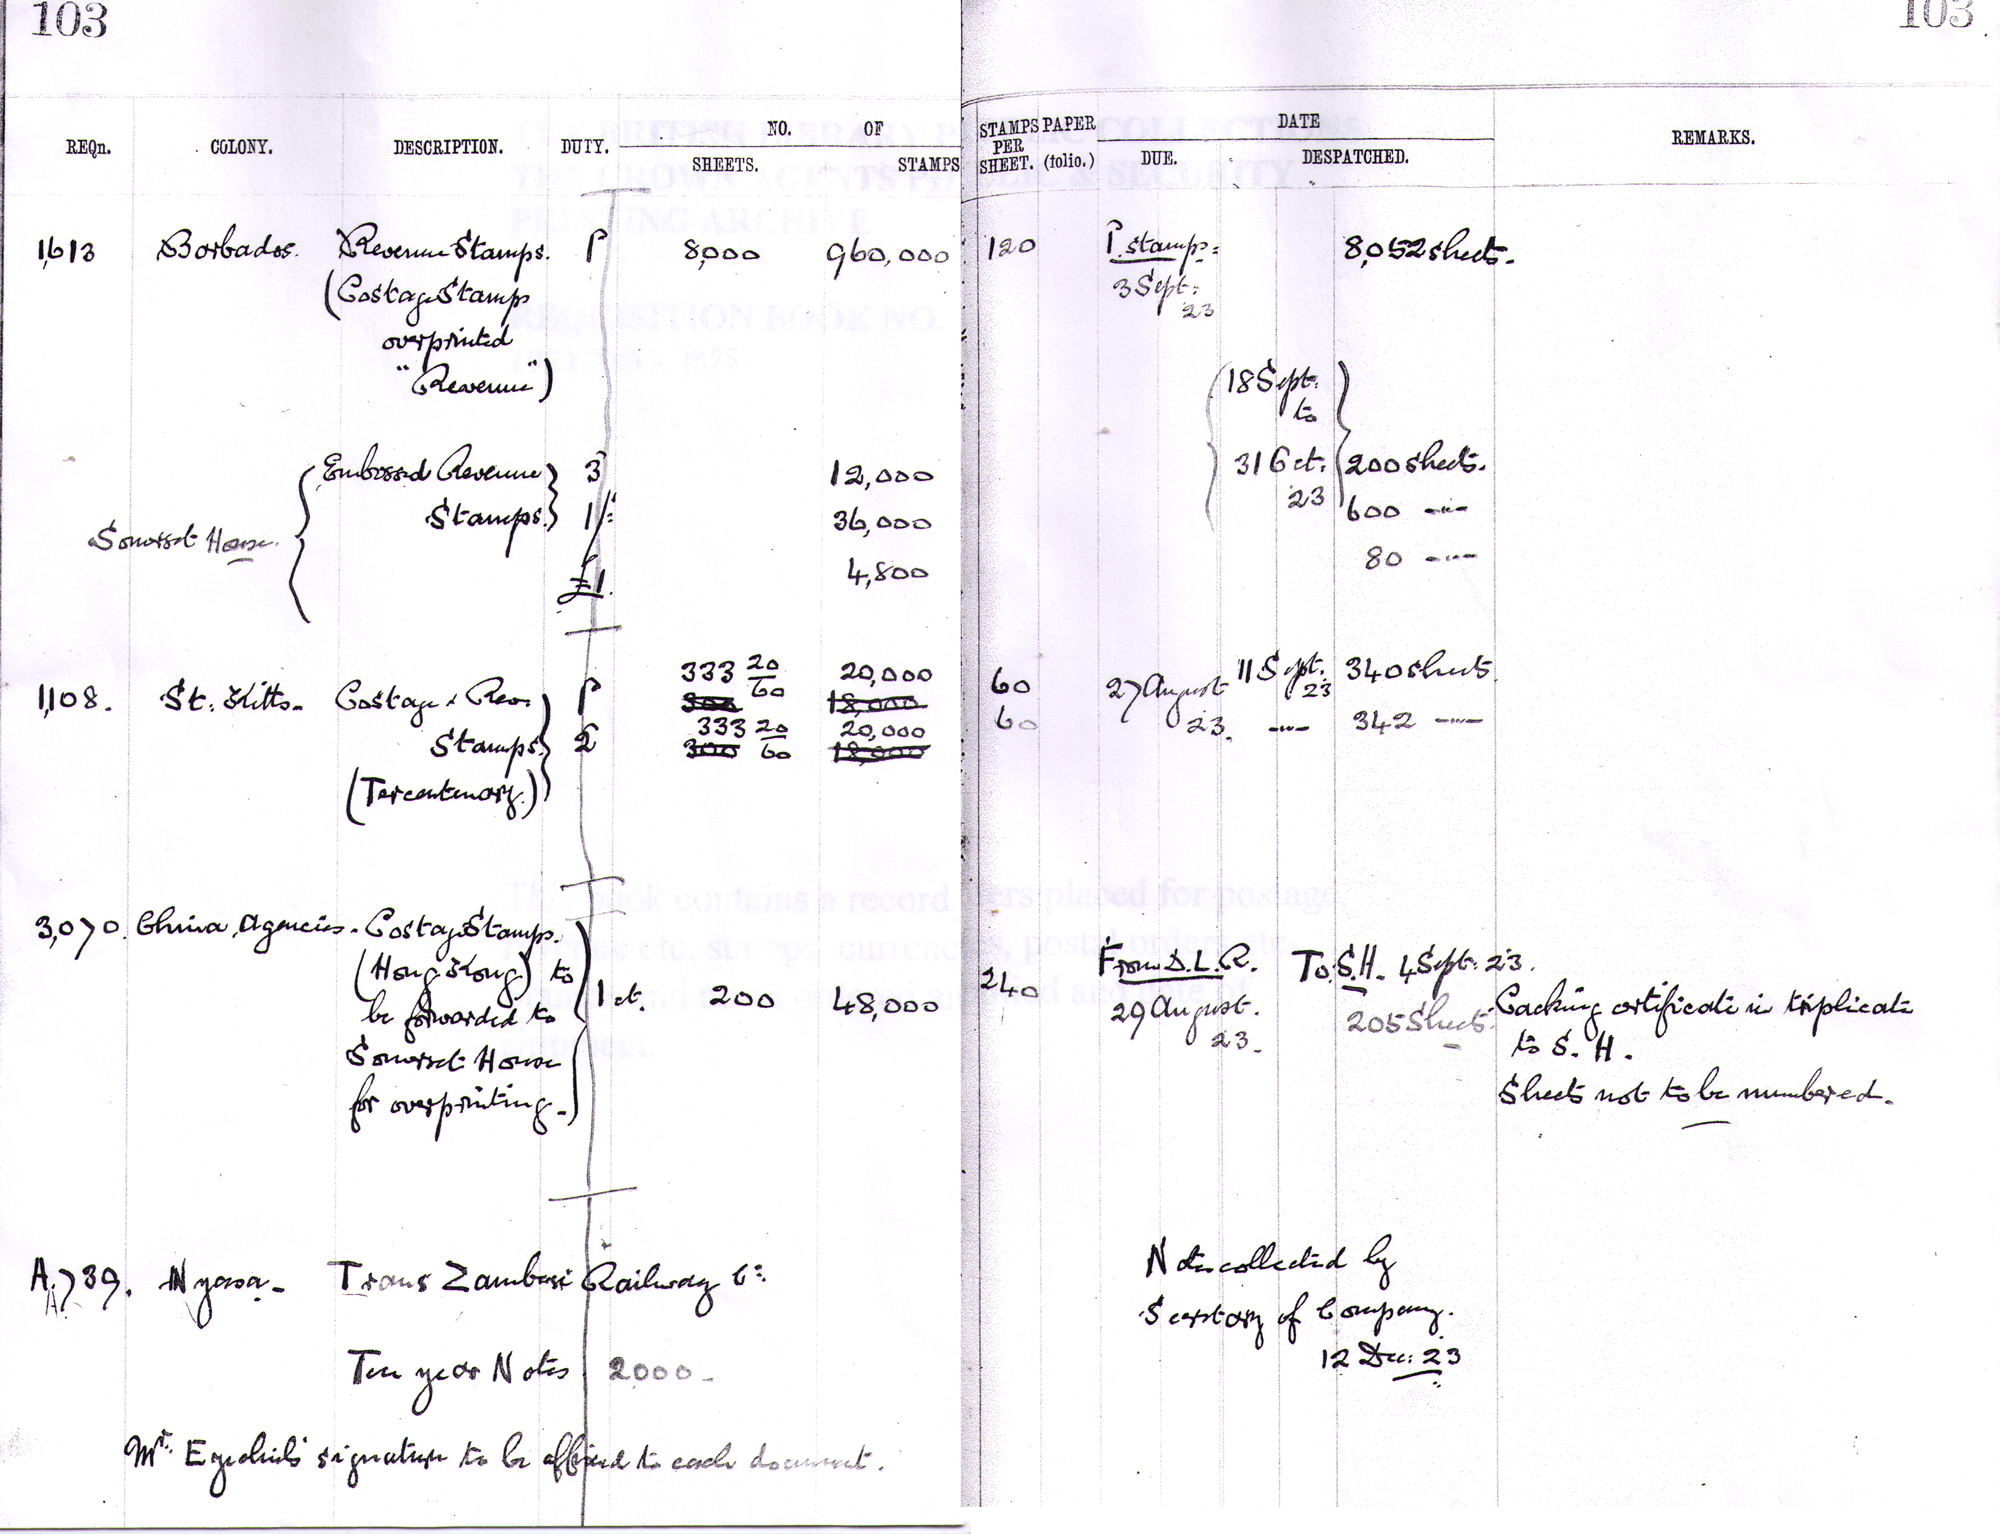 103
103
REQn. COLONY. DESCRIPTION. DUTY. NO. OF SHEETS. STAMPS STAMPS PER SHEET. PAPER (folio.) DATE DUE. DESPATCHED. REMARKS.
1,613 Barbados. Revenue Stamps. 1d 8,000 960,000 120 1d stamps: 8,052 sheets.
(Postage Stamp 3 Sept: 23
overprinted
"Revenue")
18 Sept: to 31 Oct: 23
Somerset House. Embossed Revenue 3d 12,000 200 sheets.
Stamps. 1/- 36,000 600 -"-
£1. 4,800 80 -"-
1,108. St. Kitts. Postage & Rev: 1d 333 20/60 20,000 60 27 August 23. 11 Sept. 23 340 sheets.
300 18,000
Stamps. 2d 333 20/60 20,000 60 -"- 342 -"-
300 18,000
(Tercentenary.)
3,070. China Agencies. Postage Stamps.
(Hong Kong) to From D.L.R. To S.H. 4 Sept: 23.
be forwarded to 1 ct. 200 48,000 240 29 August. 23. 205 Sheets. Packing certificate in triplicate
Somerset House to S.H.
for overprinting. Sheets not to be numbered.
A.739. Nyasa. Trans Zambesi Railway Co: Notes collected by
A
Secretary of Company.
Ten year Notes 2000. 12 Dec: 23
Mr. Ezechiel's signature to be affixed to each document.
THE BRITISH LIBRARY PHILATELIC COLLECTIONS
THE CROWN AGENTS PHILATELIC & SECURITY
PRINTING ARCHIVE
REQUISITION BOOK NO.
1925